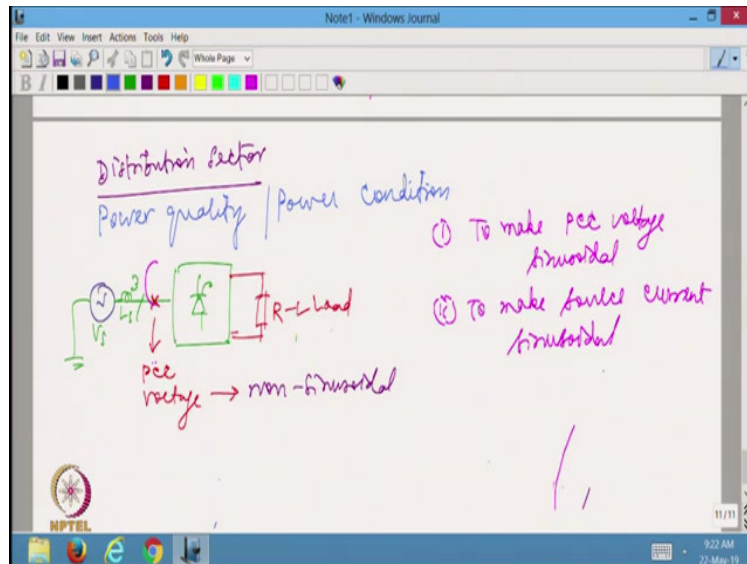 Note1 - Windows Journal
File Edit View Insert Actions Tools Help
Whole Page
B I
Distribution Sector
Power quality / Power condition
Vs
Ls
3
R-L Load
PCC
voltage → non-sinusoidal
(i) To make PCC voltage
sinusoidal
(ii) To make source current
sinusoidal
NPTEL
11/11
9:22 AM
22-May-19